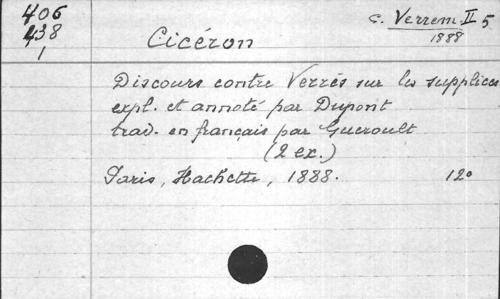 406
438
1
c. Verrem II 5
1888
Cicéron
Discours contre Verrès sur les supplices
expl. et annoté par Dupont
trad. en français par Gueroult
(2 ex.)
Paris, Hachette, 1888. 12°